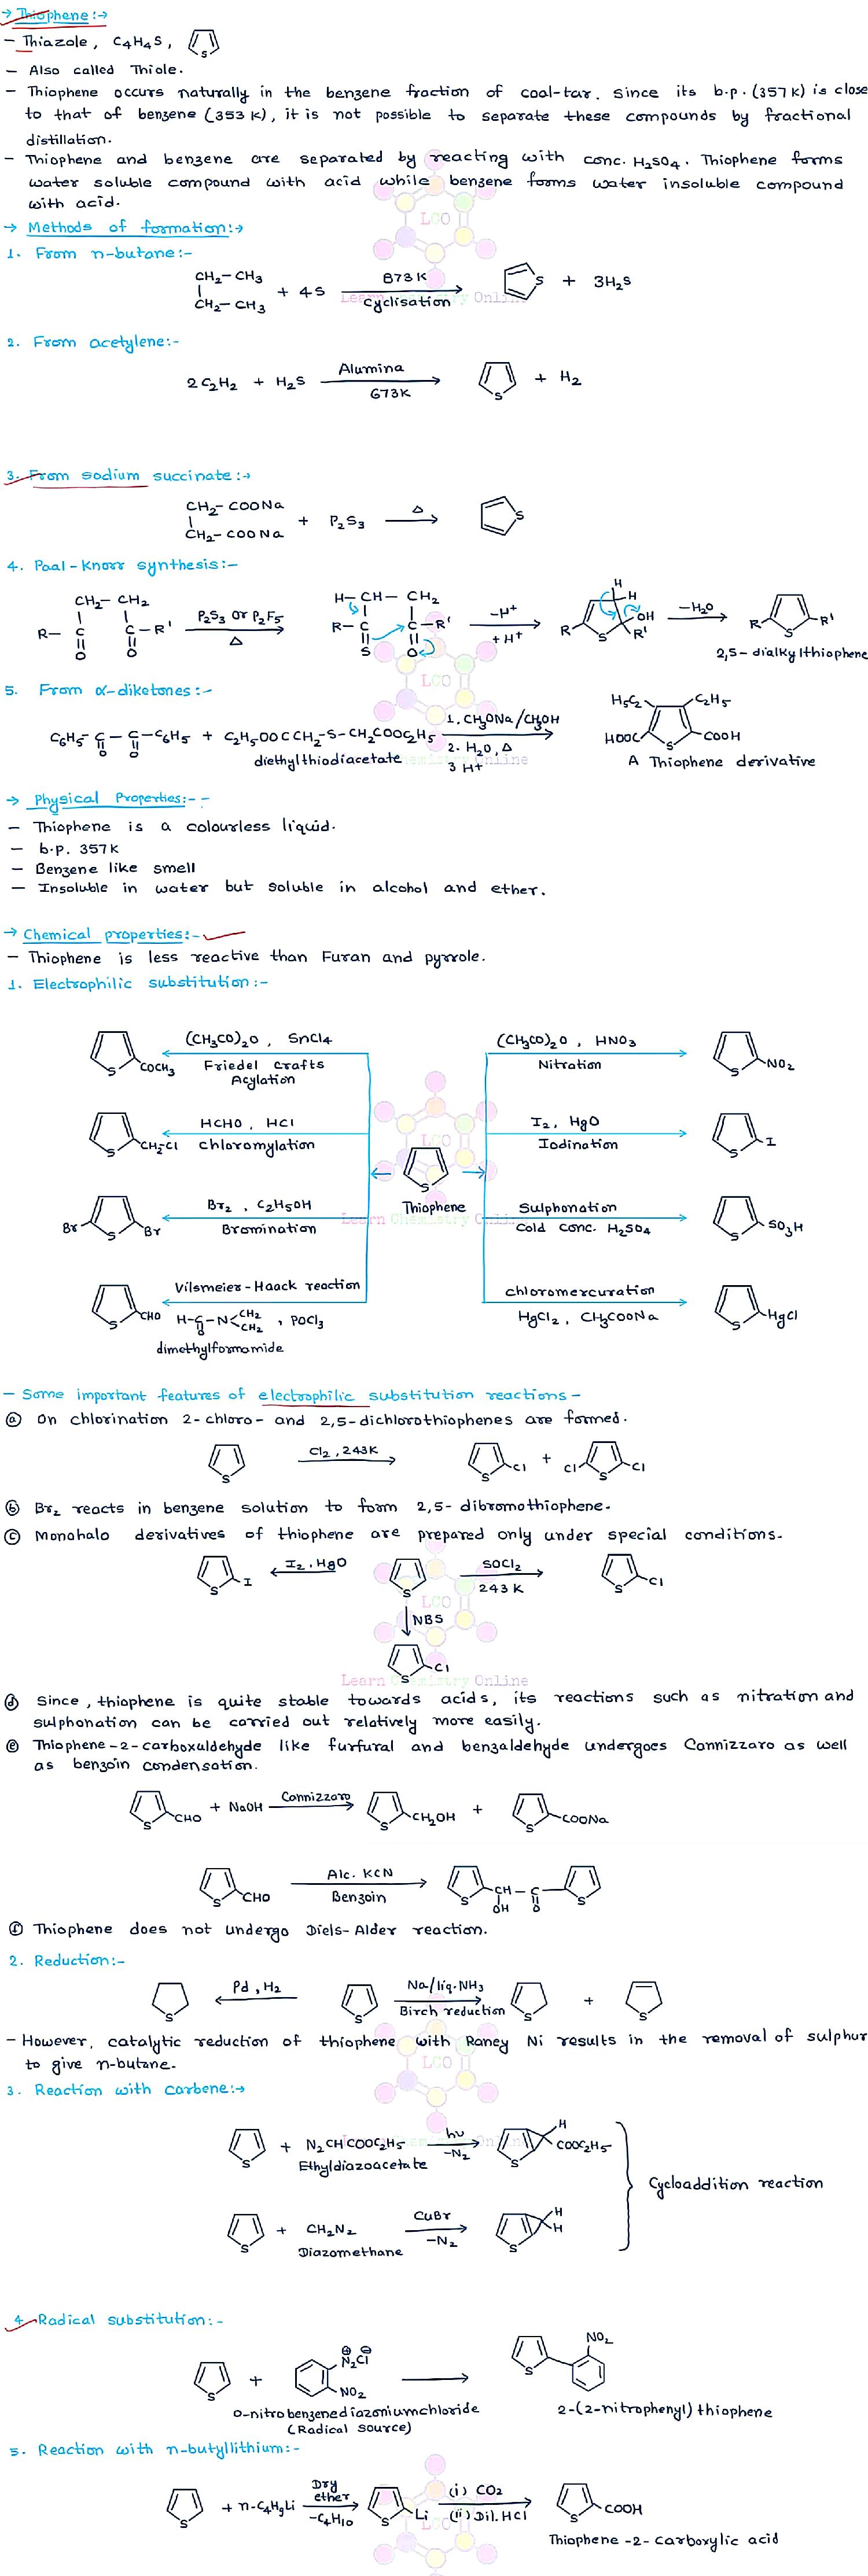 → Thiophene :→
- Thiazole, C4H4S, S
- Also called Thiole.
- Thiophene occurs naturally in the benzene fraction of coal-tar. Since its b.p. (357 K) is close
to that of benzene (353 K), it is not possible to separate these compounds by fractional
distillation.
- Thiophene and benzene are separated by reacting with conc. H2SO4. Thiophene forms
water soluble compound with acid while benzene forms water insoluble compound
with acid.
→ Methods of formation :→
1. From n-butane:-
CH2-CH3
CH2-CH3
+ 4S
873K
Cyclisation
S
+ 3H2S
2. From acetylene:-
2C2H2 + H2S
Alumina
673K
S
+ H2
3. From sodium succinate :→
CH2-COONa
CH2-COONa
+ P2S3
Δ
S
4. Paal-Knorr synthesis:-
CH2-CH2
R-C C-R'
O O
P2S3 Or P2F5
Δ
H-CH-CH2
R-C C-R'
S O
-H+
+H+
H
H
OH
R S R'
-H2O
R S R'
2,5-dialkylthiophene
5. From α-diketones :-
C6H5-C-C-C6H5 + C2H5OOCCH2-S-CH2COOC2H5
O O
diethylthiodiacetate
1. CH3ONa/CH3OH
2. H2O, Δ
3 H+
H5C2 C2H5
HOOC S COOH
A Thiophene derivative
→ Physical Properties:--
- Thiophene is a colourless liquid.
- b.p. 357K
- Benzene like smell
- Insoluble in water but soluble in alcohol and ether.
→ Chemical properties:-
- Thiophene is less reactive than Furan and pyrrole.
1. Electrophilic substitution:-
S COCH3
(CH3CO)2O, SnCl4
Friedel Crafts
Acylation
(CH3CO)2O, HNO3
Nitration
S NO2
S CH2Cl
HCHO, HCl
Chloromylation
I2, HgO
Iodination
S I
S
Thiophene
Br S Br
Br2, C2H5OH
Bromination
Sulphonation
Cold conc. H2SO4
S SO3H
S CHO
Vilsmeier-Haack reaction
H-C-N CH2 CH2, POCl3
O
dimethylformamide
chloromercuration
HgCl2, CH3COONa
S HgCl
- Some important features of electrophilic substitution reactions -
ⓐ On chlorination 2-chloro- and 2,5-dichlorothiophenes are formed.
S
Cl2, 243K
S Cl + Cl S Cl
ⓑ Br2 reacts in benzene solution to form 2,5-dibromothiophene.
ⓒ Monohalo derivatives of thiophene are prepared only under special conditions.
S I
I2, HgO
S
SOCl2
243K
S Cl
NBS
S Cl
ⓓ Since, thiophene is quite stable towards acids, its reactions such as nitration and
sulphonation can be carried out relatively more easily.
ⓔ Thiophene-2-carboxaldehyde like furfural and benzaldehyde undergoes Cannizzaro as well
as benzoin condensation.
S CHO + NaOH
Cannizzaro
S CH2OH + S COONa
S CHO
Alc. KCN
Benzoin
S CH-C S
OH O
ⓕ Thiophene does not undergo Diels-Alder reaction.
2. Reduction:-
S
Pd, H2
S
Na/liq. NH3
Birch reduction
S + S
- However, catalytic reduction of thiophene with Raney Ni results in the removal of sulphur
to give n-butane.
3. Reaction with carbene:→
S + N2CHCOOC2H5
Ethyldiazoacetate
hν
-N2
S H
COOC2H5
Cycloaddition reaction
S + CH2N2
Diazomethane
CuBr
-N2
S H
H
4. Radical substitution:-
S + N2Cl
NO2
O-nitrobenzenediazoniumchloride
(Radical source)
S NO2
2-(2-nitrophenyl) thiophene
5. Reaction with n-butyllithium:-
S + n-C4H9Li
Dry
ether
-C4H10
S Li
(i) CO2
(ii) Dil. HCl
S COOH
Thiophene-2-carboxylic acid
LCO
Learn Chemistry Online